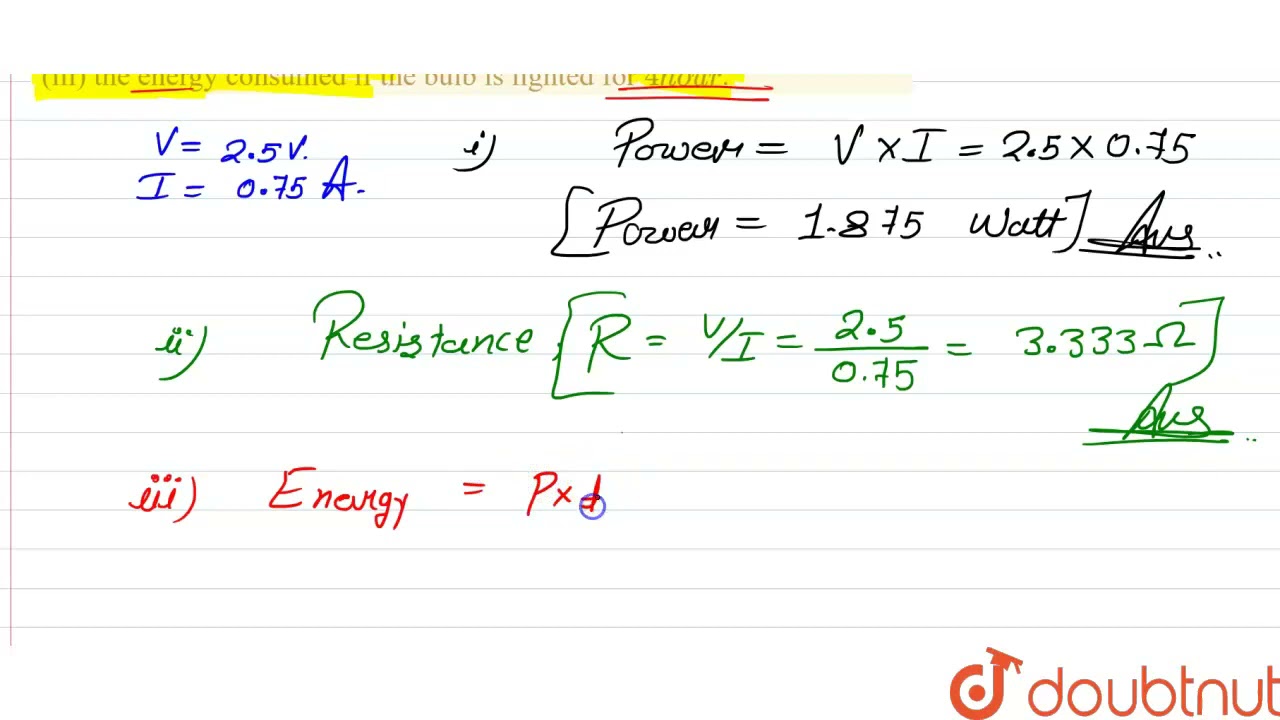 (iii) the energy consumed if the bulb is lighted for 4hour.
V = 2.5 V.
I = 0.75 A.
i) Power = V × I = 2.5 × 0.75
[Power = 1.875 Watt] Ans..
ii) Resistance [R = V/I = 2.5/0.75 = 3.333 Ω]
Ans..
iii) Energy = P×t
doubtnut